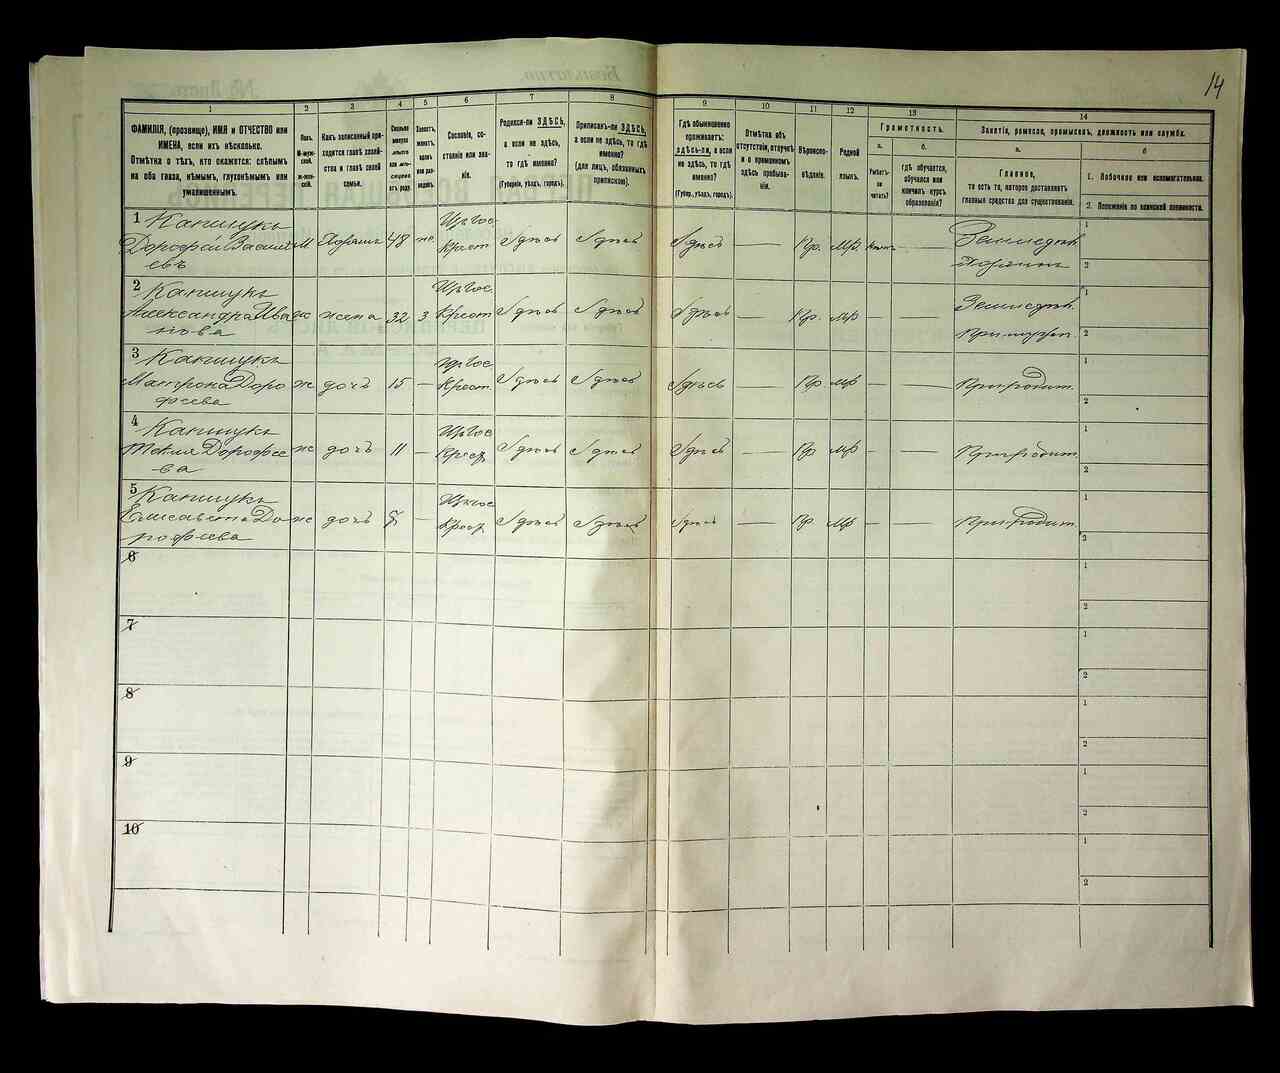 14
1 2 3 4 5 6 7 8 9 10 11 12 13 14
ФАМИЛІЯ, (прозвище), ИМЯ и ОТЧЕСТВО или
ИМЕНА, если ихъ нѣсколько.
Отмѣтка о тѣхъ, кто окажется: слѣпымъ
на оба глаза, нѣмымъ, глухонѣмымъ или
умалишеннымъ.
Полъ.
М-мужской.
Ж-женскій.
Какъ записанный приходится главѣ хозяйства и главѣ своей семьи.
Сколько минуло лѣтъ или мѣсяцевъ отъ роду.
Холостъ, женатъ, вдовъ или разведенъ.
Сословіе, состояніе или званіе.
Родился-ли ЗДѢСЬ,
а если не здѣсь,
то гдѣ именно?
(Губернія, уѣздъ, городъ).
Приписанъ-ли ЗДѢСЬ,
а если не здѣсь, то гдѣ
именно?
(для лицъ, обязанныхъ
припискою).
Гдѣ обыкновенно
проживаетъ:
здѣсь-ли, а если
не здѣсь, то гдѣ
именно?
(Губер., уѣздъ, городъ).
Отмѣтка объ
отсутствіи, отлучкѣ
и о временномъ
здѣсь пребываніи.
Вѣроисповѣданіе.
Родной
языкъ.
Грамотность.
а. б.
Умѣетъ-ли
читать?
гдѣ обучается,
обучался или
кончилъ курсъ
образованія?
Занятіе, ремесло, промыселъ, должность или служба.
а. б
Главное,
то есть то, которое доставляетъ
главныя средства для существованія.
1. Побочное или вспомогательное.
2. Положеніе по воинской повинности.
1 Капшукъ
Дорофей Василь
евъ
М Хозяинъ 48 же Крест Здѣсь Здѣсь Здѣсь — Пр. Мр. — Земледѣл
Хозяинъ
1
2
2 Капшукъ
Александра Ива
нова
ж жена 32 З Крест Здѣсь Здѣсь Здѣсь — Пр. Мр — — Земледѣл.
При муж
1
2
3 Капшукъ
Матрона Доро
феева
ж дочь 15 — Крест Здѣсь Здѣсь Здѣсь — Пр Мр — — При родит.
1
2
4 Капшукъ
Текля Дорофее
ва
ж дочь 11 — Крест Здѣсь Здѣсь Здѣсь — Пр Мр — — При родит.
1
2
5 Капшукъ
Елисавета До
рофеева
ж дочь — Крест Здѣсь Здѣсь Здѣсь — Пр Мр — — При родит.
1
2
6
1
2
7
1
2
8
1
2
9
1
2
10
1
2